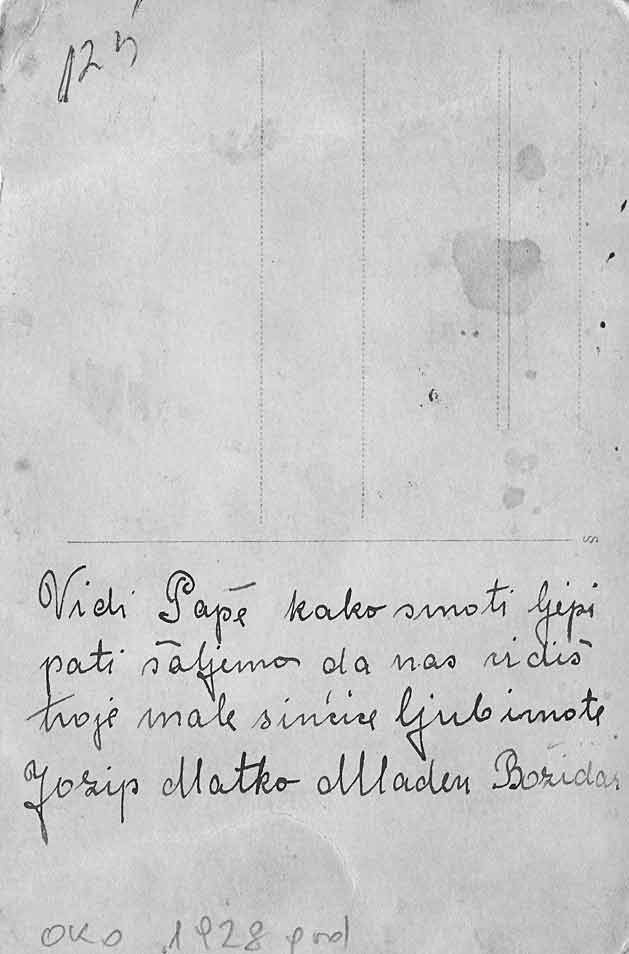 125
Vidi Papė kako smoti ljepi
pati šaljemo da nas vidiš
tvoje male sinčiće ljubimote
Jozip Matko Mladen Božidar
oko 1928 god